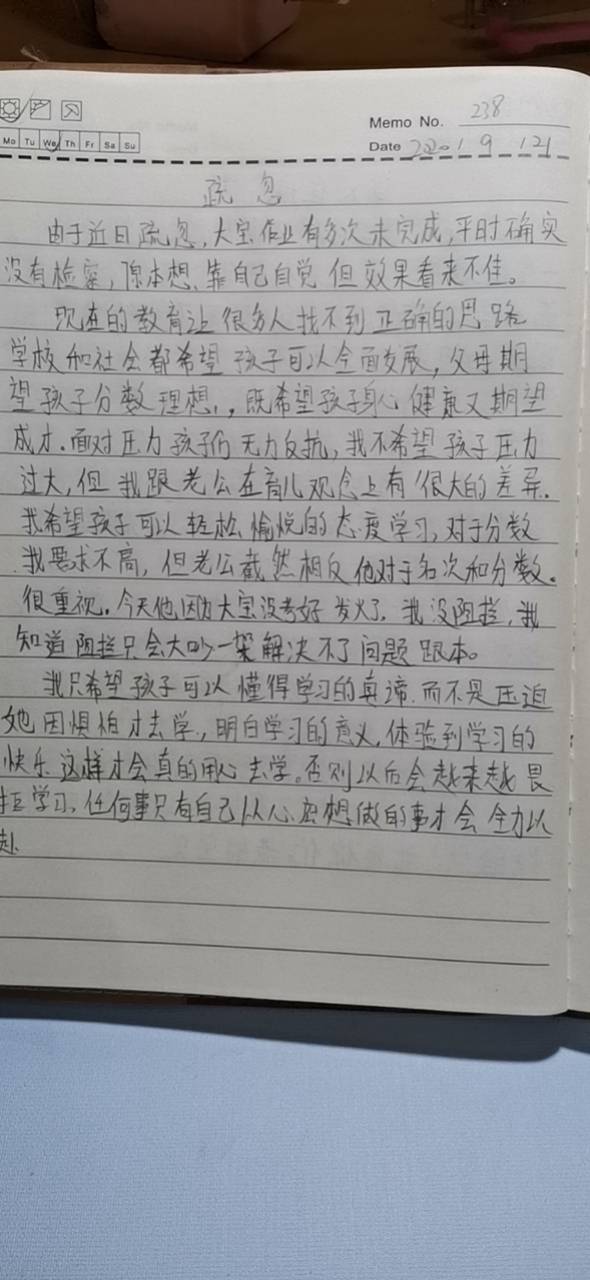 Memo No. 238
Mo Tu We Th Fr Sa Su
Date 2020 / 9 / 21
疏忽
由于近日疏忽,大宝作业有多次未完成,平时确实
没有检察,原本想、靠自己自觉但效果看来不佳。
现在的教育让很多人找不到正确的思路
学校和社会都希望孩子可以全面发展,父母期
望孩子分数理想,,既希望孩子身心健康又期望
成才.面对压力孩子们无力反抗,我不希望孩子压力
过大,但我跟老公在育儿观念上有很大的差异.
我希望孩子可以轻松愉悦的态度学习,对于分数
我要求不高,但老公截然相反他对于名次和分数.
很重视.今天他因为大宝没考好发火了.我没阻拦,我
知道阻拦只会大吵一架解决不了问题跟本。
我只希望孩子可以懂得学习的真谛.而不是压迫
她因惧怕才去学.,明白学习的意义,体验到学习的
快乐.这样才会真的用心去学。否则以后会越来越畏
拒学习,任何事只有自己从心里想做的事才会全力以
赴.